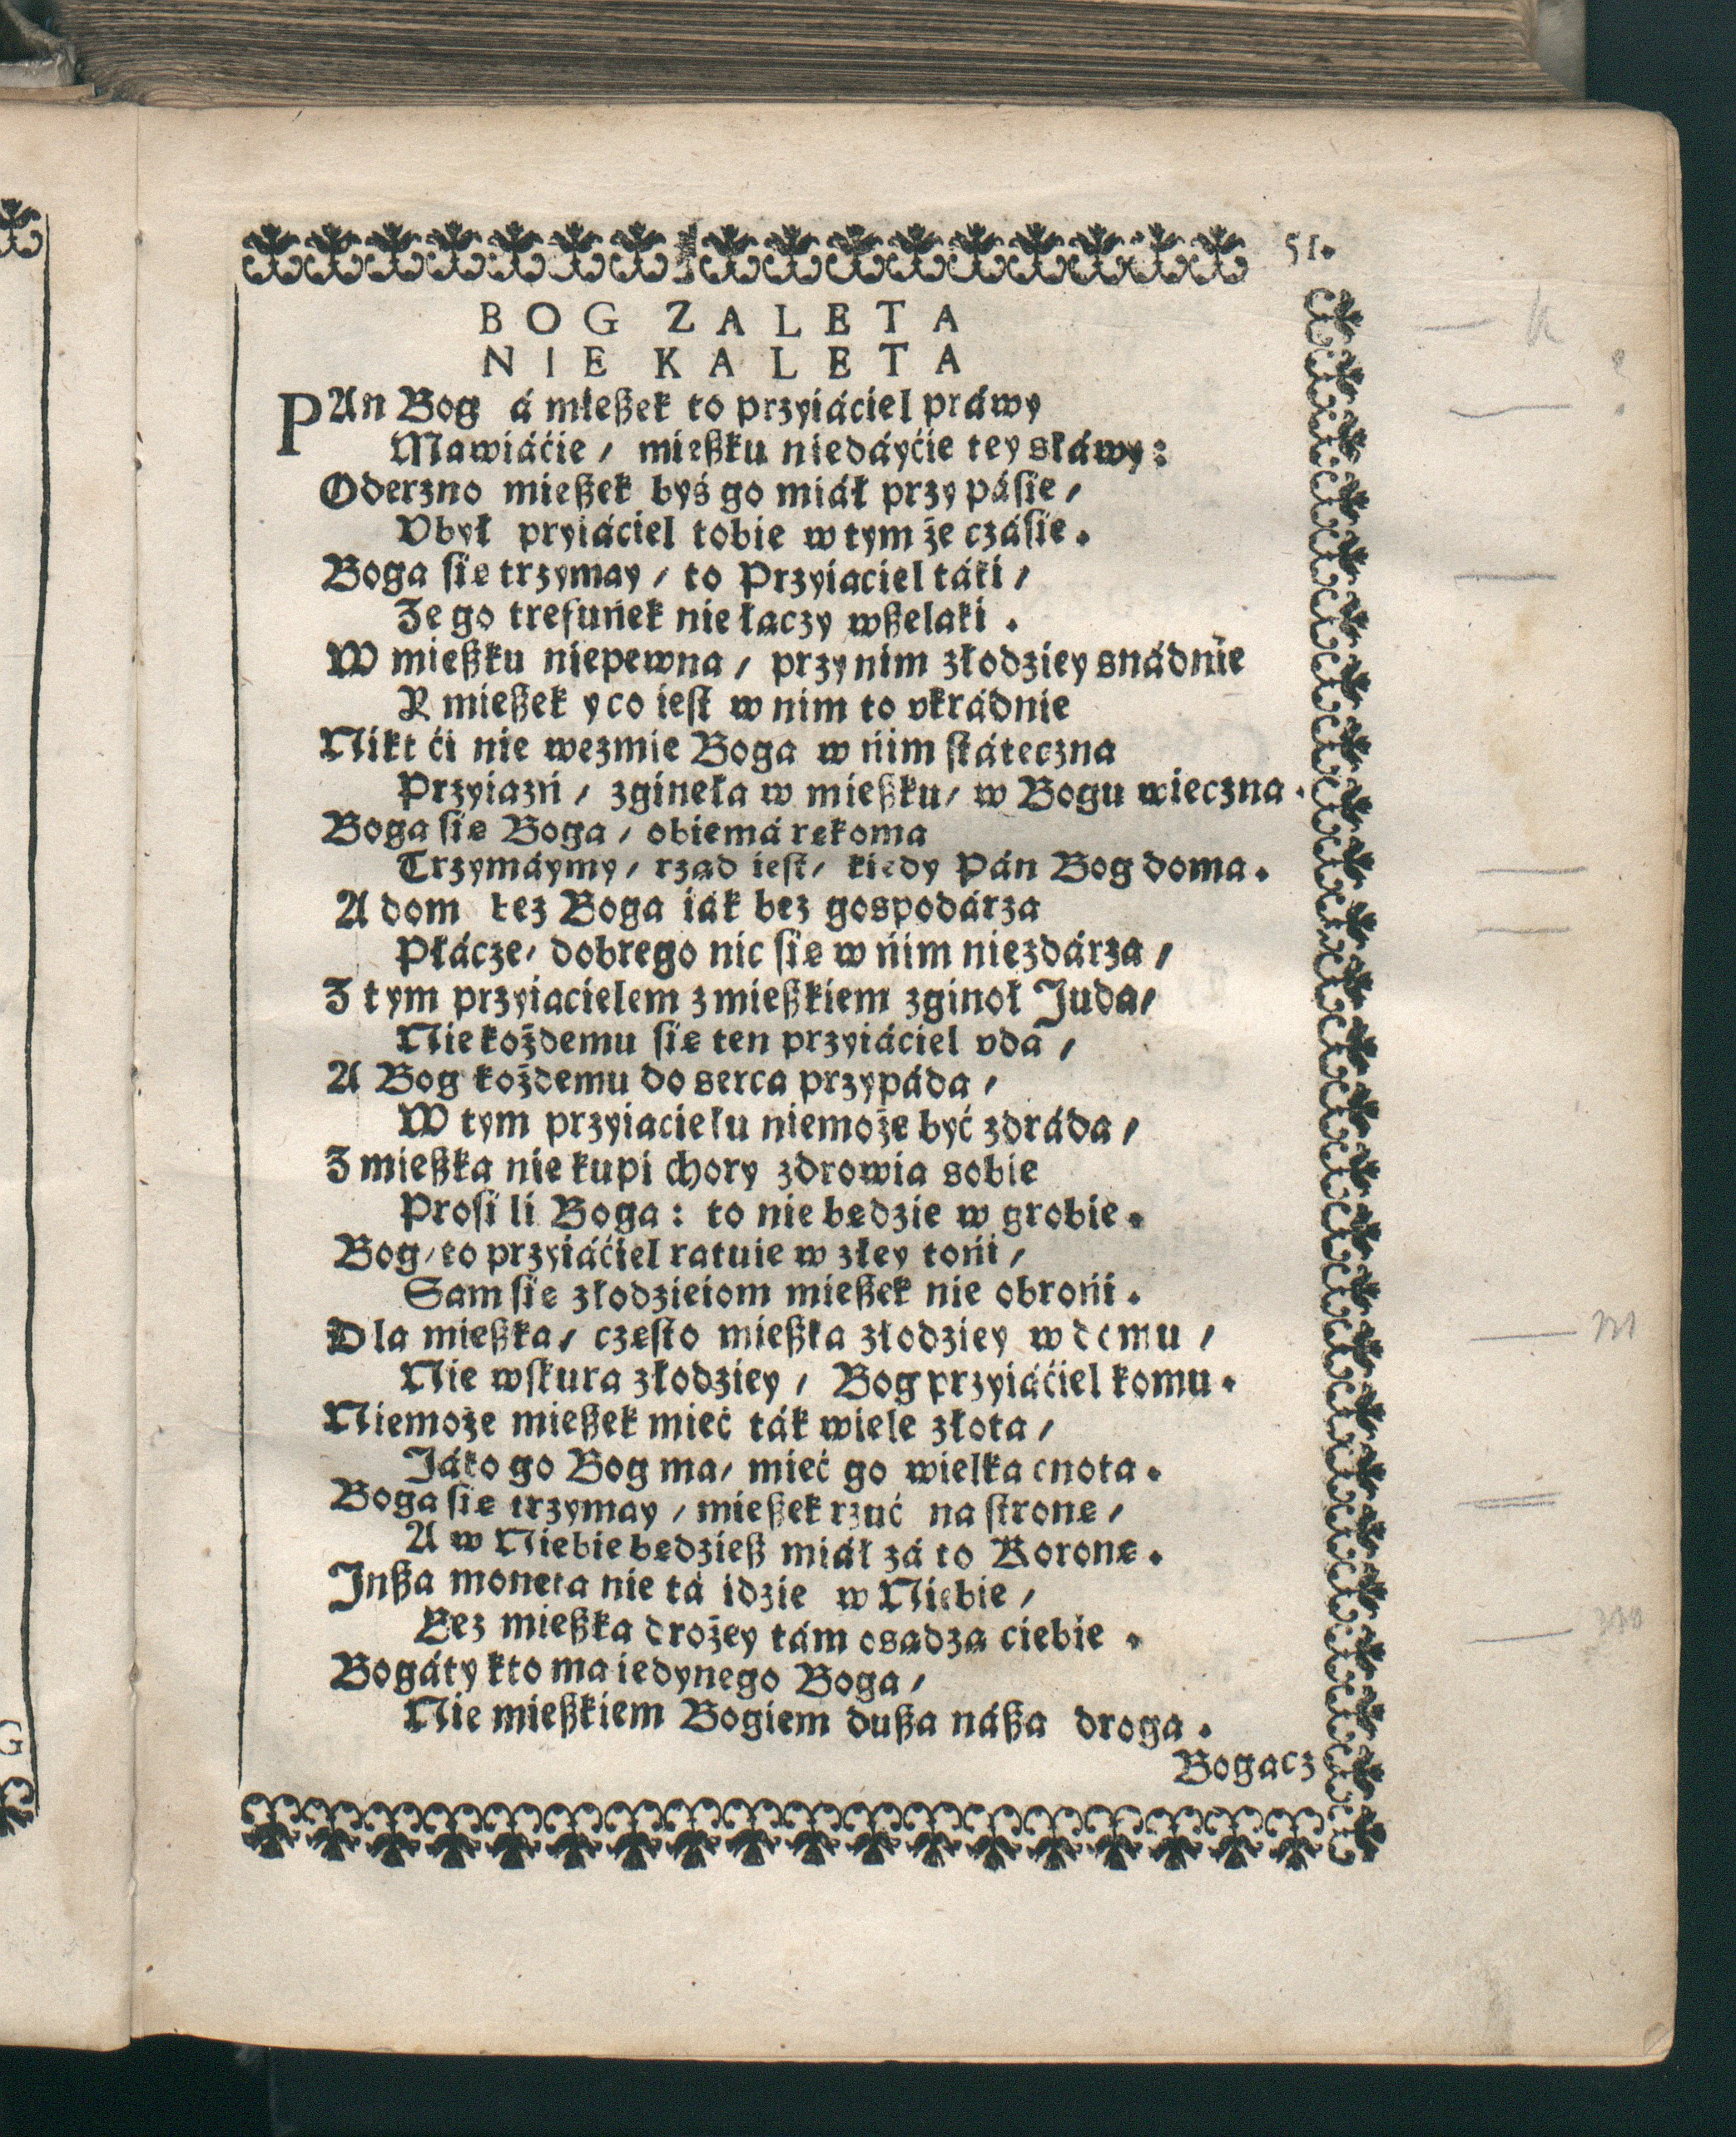 51.
BOG ZALETA
NIE KALETA
PAn Bog á mießek to przyiáciel práwy
Mawiáćie / mießku niedáyćie tey słáwy:
Oderzno mießek byś go miáł przy pásie /
Vbył pryiáciel tobie w tym że czásie.
Boga sie trzymay / to Przyiaciel táki /
Ze go trefuńek nie łaczy wßelaki.
W mießku niepewna / przy nim złodziey snádnie
Y mießek y co iest w nim to vkrádnie
Nikt ći nie wezmie Boga w ńim státeczna
Przyiazń / zgineła w mießku / w Bogu wieczna.
Boga sie Boga / obiemá rekoma
Trzymáymy / rzad iest / kiedy Pán Bog doma.
A dom bez Boga iák bez gospodárza
Płácze / dobrego nic sie w ńim niezdárza /
Z tym przyiacielem z mießkiem zginoł Juda /
Nie kożdemu sie ten przyiáciel vda /
A Bog kożdemu do serca przypáda /
W tym przyiacielu niemoże być zdráda /
Z mießka nie kupi chory zdrowia sobie
Prosi li Boga: to nie bedzie w grobie.
Bog / to przyiáćiel ratuie w złey tońi /
Sam sie złodzieiom mießek nie obrońi.
Dla mießka / często mießka złodziey w domu /
Nie wskura złodziey / Bog przyiáćiel komu.
Niemoże mießek mieć ták wiele złota /
Jáko go Bog ma / mieć go wielka cnota.
Boga sie trzymay / mießek rzuć na strone /
A w Niebie będzieß miáł zá to Korone.
Jnßa moneta nie tá idzie w Niebie /
Bez mießka drożey tám osadza ciebie.
Bogáty kto ma iedynego Boga /
Nie mießkiem Bogiem dußa náßa droga.
Bogacz
G